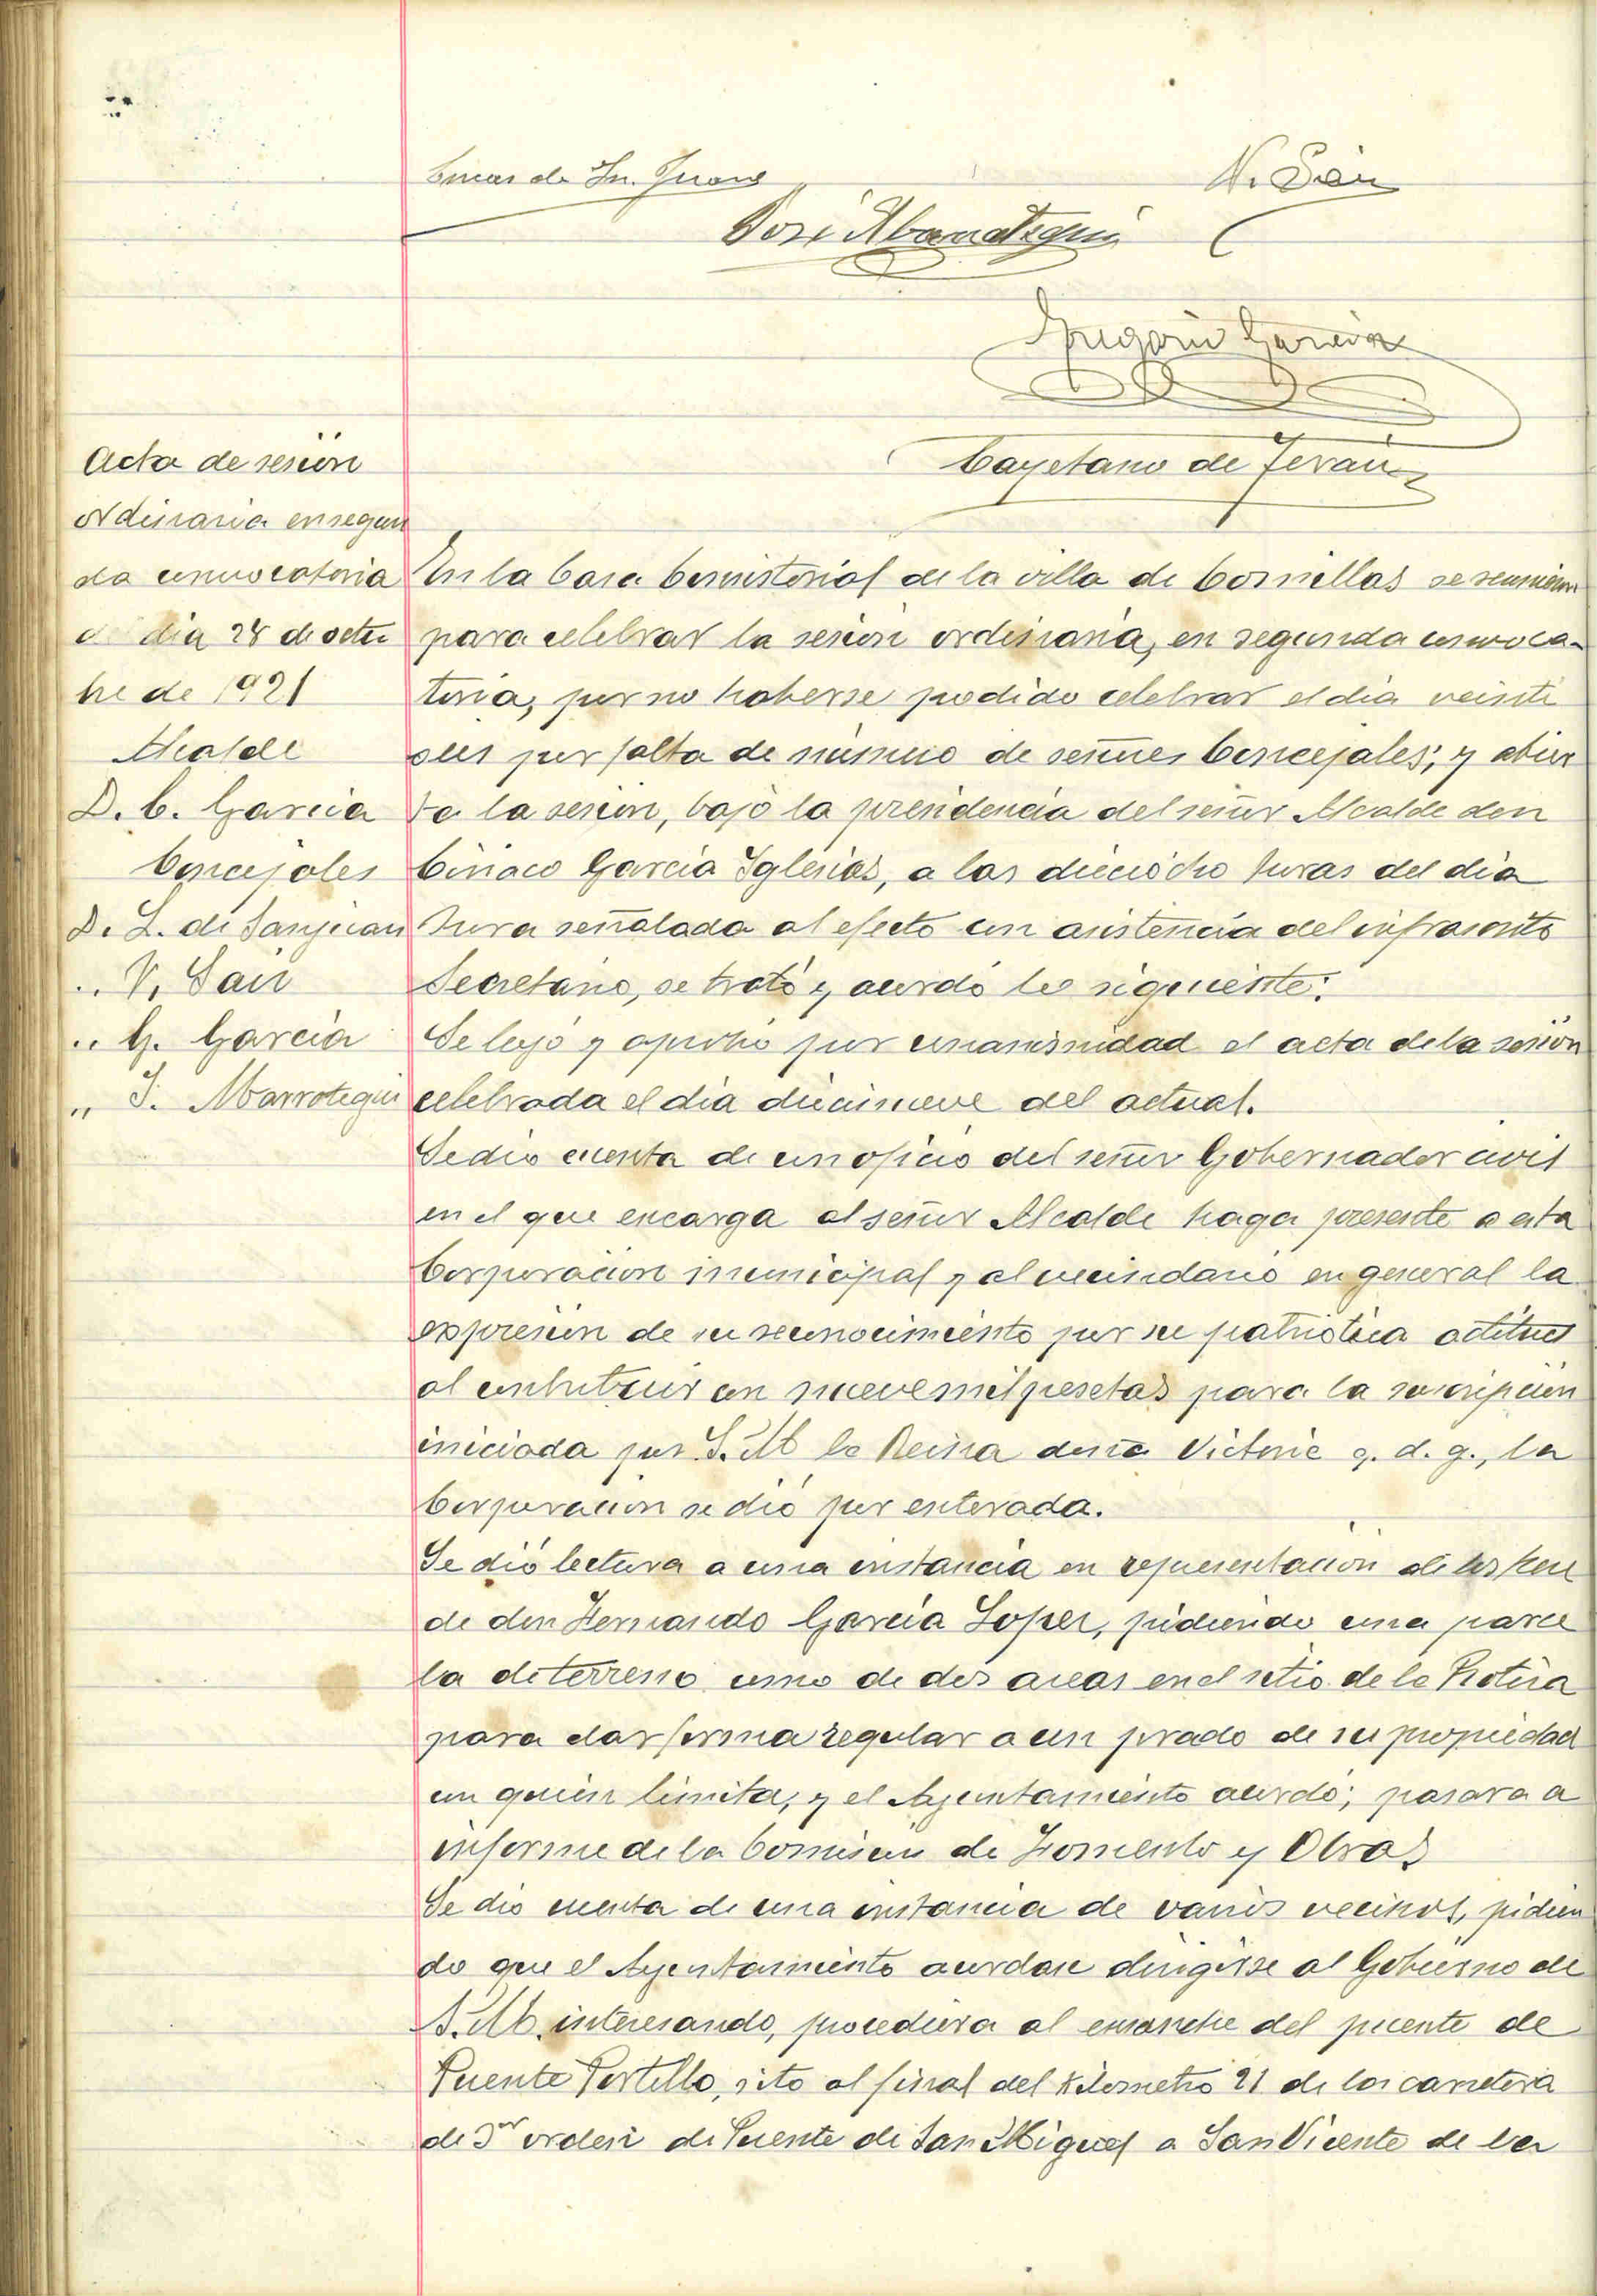 Lucas de Sn. Juan
V. San
José Marrotegui
Gregorio Garcia
Cayetano de Terán
Acta de sesion
ordinaria en segun
da convocatoria
dia 28 de octu
bre de 1921
Alcalde
D. C. Garcia
Concejales
D. L. de Sanjuan
.. V. San
.. G. Garcia
" J. Marrotegui
En la Casa Consistorial de la villa de Comillas se reunieron
para celebrar la sesion ordinaria, en segunda convoca-
toria, por no haberse podido celebrar el dia veinti
seis por falta de número de señores Concejales; y abier
ta la sesion, bajo la presidencia del señor Alcalde don
Ciriaco Garcia Iglesias, a las dieciocho horas del dia
hora señalada al efecto con asistencia del infrascrito
Secretario, se trató y acordó lo siguiente:
Se leyó y aprobó por unanimidad el acta de la sesión
celebrada el dia diecinueve del actual.
Se dio cuenta de un oficio del señor Gobernador civil
en el que encarga al señor Alcalde haga presente a esta
Corporación municipal y al vecindario en general la
expresion de su reconocimiento por su patriótica actitud
al contribuir con nueve mil pesetas para la suscripcion
iniciada por S. M la Reina doña Victoria q. d. g., la
Corporacion se dió por enterada.
Se dió lectura a una instancia en representacion de los her
de don Hernando Garcia Lopez, pidiendo una parce
la de terreno como de dos areas en el sitio de la
para dar forma regular a un prado de su propiedad
con quien limita, y el Ayuntamiento acordó; pasara a
informe de la Comision de Fomento y Obras
Se dio cuenta de una instancia de varios vecinos, pidien
do que el Ayuntamiento acordase dirigirse al Gobierno de
S. M. interesando, procediera al ensanche del puente de
Puente Portillo, sito al final del kilometro 21 de la carretera
de 3er orden de Puente de San Miguel a San Vicente de la